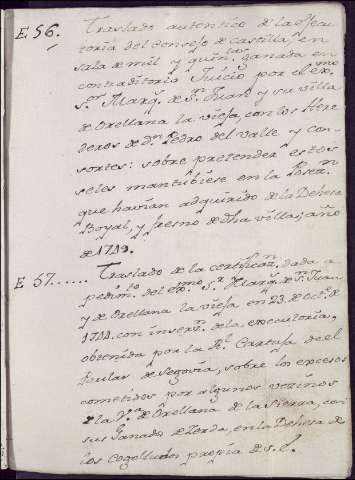 E 56. Traslado autentico de la Execu
toria del Consejo de Castilla, en
sala de mil y quin.tos ganada en
contraditorio Juicio por el ex.mo
S.or Marq.s de S.n Juan y su villa
de Orellana la vieja, con los Here
deros de d.n Pedro del Valle y con
sortes: sobre pretender estos
seles mantubiese en la Poses.n
que havian adquirido de la Dehesa
Boyal, y fresno de dha villas; año
de
E 57...... Traslado de la certificaz.n dada a
pedim.to del ex.mo S.r Marq.s de S.n Juan,
y de Orellana la vieja en 23. de Oct.e de
1744. con inserz.n de la executoria,
obtenida por la R.l Cartuja de el
Paular de Segovia, sobre los excesos
cometidos por algunos vezinos
de la V.a de Orellana de la Sierra, con
sus Ganado de Zerda, en la Dehesa de
los Cogolludos propia de